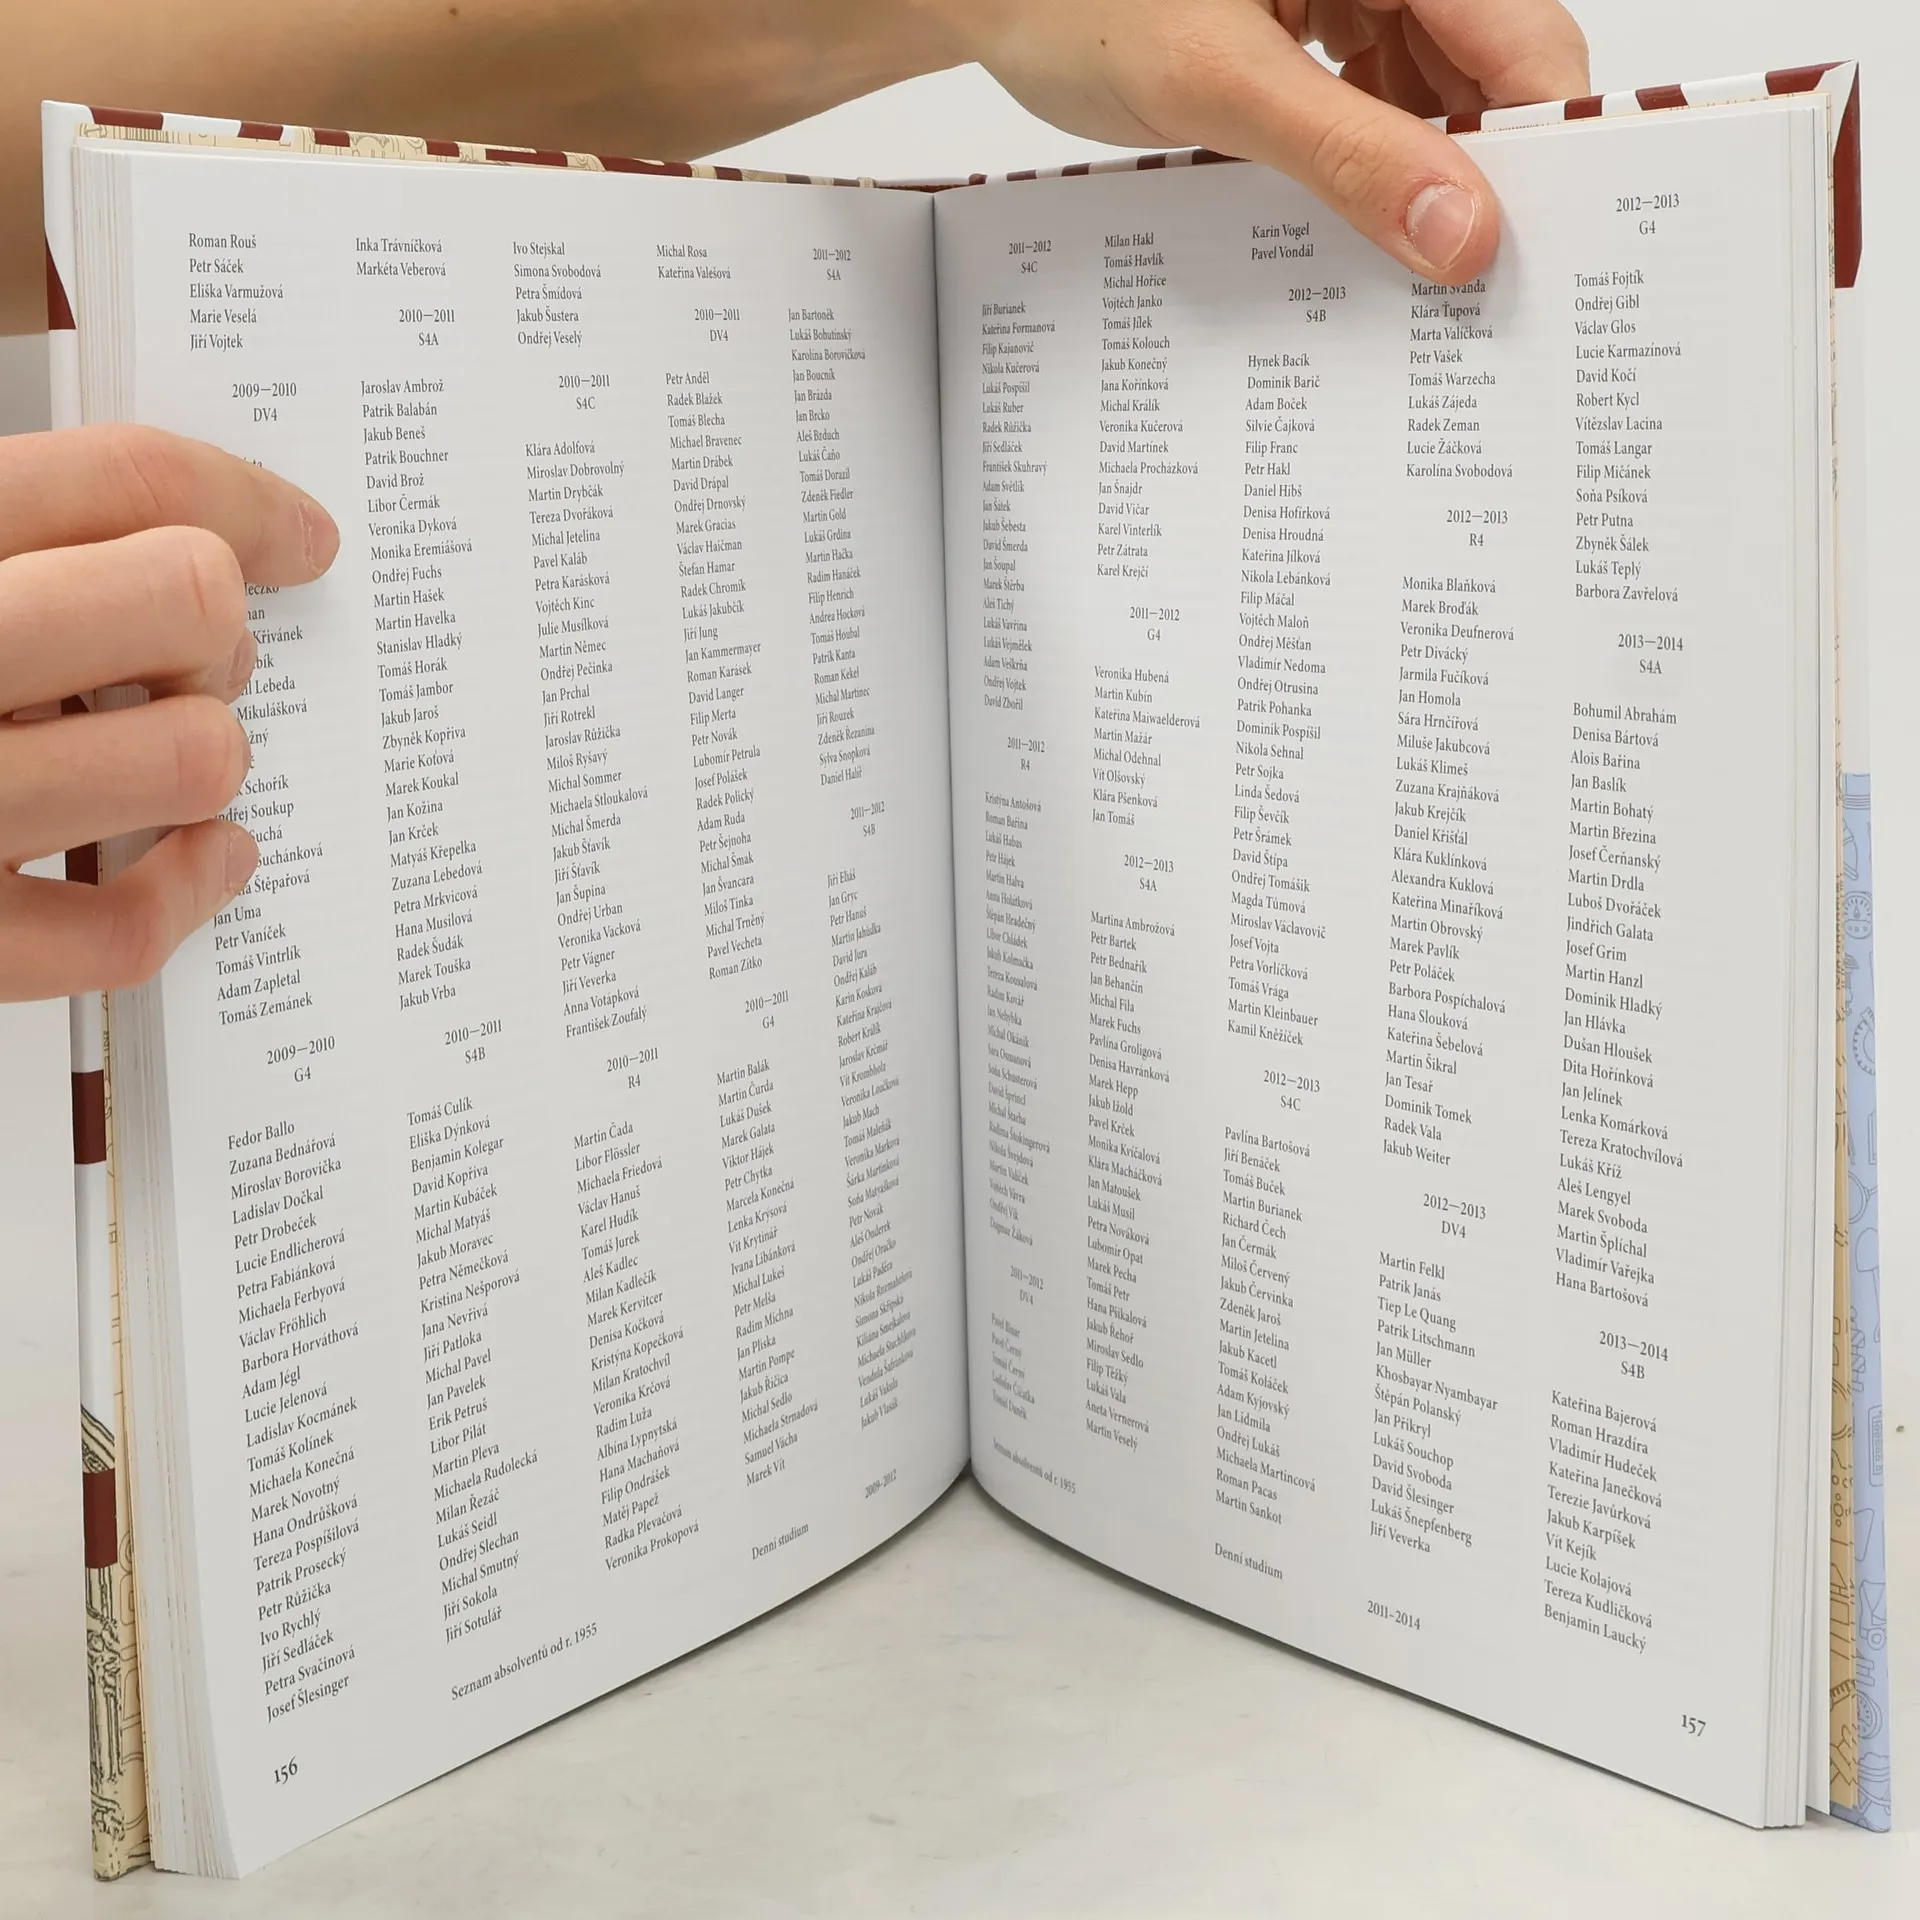 Roman Rouš
Petr Sáček
Eliška Varmužová
Marie Veselá
Jiří Vojtek
2009—2010
DV4
Křivánek
Lebeda
Mikulášková
Schořík
Soukup
Suchá
Suchánková
Štěpařová
Jan Uma
Petr Vaníček
Tomáš Vintrlík
Adam Zapletal
Tomáš Zemánek
2009—2010
G4
Fedor Ballo
Zuzana Bednářová
Miroslav Borovička
Ladislav Dočkal
Petr Drobeček
Lucie Endlicherová
Petra Fabiánková
Michaela Ferbyová
Václav Fröhlich
Barbora Horváthová
Adam Jégl
Lucie Jelenová
Ladislav Kocmánek
Tomáš Kolínek
Michaela Konečná
Marek Novotný
Hana Ondrůšková
Tereza Pospíšilová
Patrik Prosecký
Petr Růžička
Ivo Rychlý
Jiří Sedláček
Petra Svačinová
Josef Šlesinger
Inka Trávníčková
Markéta Veberová
2010—2011
S4A
Jaroslav Ambrož
Patrik Balabán
Jakub Beneš
Patrik Bouchner
David Brož
Libor Čermák
Veronika Dyková
Monika Eremiášová
Ondřej Fuchs
Martin Hašek
Martin Havelka
Stanislav Hladký
Tomáš Horák
Tomáš Jambor
Jakub Jaroš
Zbyněk Kopřiva
Marie Koťová
Marek Koukal
Jan Kožina
Jan Krček
Matyáš Křepelka
Zuzana Lebedová
Petra Mrkvicová
Hana Musilová
Radek Šudák
Marek Touška
Jakub Vrba
2010—2011
S4B
Tomáš Culík
Eliška Dýnková
Benjamin Kolegar
David Kopřiva
Martin Kubáček
Michal Matyáš
Jakub Moravec
Petra Němečková
Kristina Nešporová
Jana Nevřivá
Jiří Patloka
Michal Pavel
Jan Pavelek
Erik Petruš
Libor Pilát
Martin Pleva
Michaela Rudolecká
Milan Řezáč
Lukáš Seidl
Ondřej Slechan
Michal Smutný
Jiří Sokola
Jiří Sotulář
Ivo Stejskal
Simona Svobodová
Petra Šmídová
Jakub Šustera
Ondřej Veselý
2010—2011
S4C
Klára Adolfová
Miroslav Dobrovolný
Martin Drybčák
Tereza Dvořáková
Michal Jetelina
Pavel Kaláb
Petra Karásková
Vojtěch Kinc
Julie Musílková
Martin Němec
Ondřej Pečinka
Jan Prchal
Jiří Rotrekl
Jaroslav Růžička
Miloš Ryšavý
Michal Sommer
Michaela Stloukalová
Michal Šmerda
Jakub Šťavík
Jiří Šťavík
Jan Šupina
Ondřej Urban
Veronika Vacková
Petr Vágner
Jiří Veverka
Anna Votápková
František Zoufalý
2010—2011
R4
Martin Čada
Libor Flössler
Michaela Friedová
Václav Hanuš
Karel Hudík
Tomáš Jurek
Aleš Kadlec
Milan Kadlečík
Marek Kervitcer
Denisa Kočková
Kristýna Kopečková
Milan Kratochvíl
Veronika Krčová
Radim Luža
Albína Lypnytská
Hana Machaňová
Filip Ondrášek
Matěj Papež
Radka Plevačová
Veronika Prokopová
Michal Rosa
Kateřina Valešová
2010—2011
DV4
Petr Anděl
Radek Blažek
Tomáš Blecha
Michael Bravenec
Martin Drábek
David Drápal
Ondřej Drnovský
Marek Gracias
Václav Haičman
Štefan Hamar
Radek Chromík
Lukáš Jakubčík
Jiří Jung
Jan Kammermayer
Roman Karásek
David Langer
Filip Merta
Petr Novák
Lubomír Petrula
Josef Polášek
Radek Polický
Adam Ruda
Petr Šejnoha
Michal Šmak
Jan Švancara
Miloš Tinka
Michal Trněný
Pavel Vecheta
Roman Zítko
2010—2011
G4
Martin Balák
Martin Čurda
Lukáš Dušek
Marek Galata
Viktor Hájek
Petr Chytka
Marcela Konečná
Lenka Krýsová
Vít Krytinář
Ivana Libánková
Michal Lukeš
Petr Melša
Radim Michna
Jan Pliska
Martin Pompe
Jakub Řičica
Michal Sedlo
Michaela Strnadová
Samuel Vácha
Marek Vít
2011—2012
S4A
Jan Bartoněk
Lukáš Bohutinský
Karolína Borovičková
Jan Boucník
Jan Brázda
Jan Brcko
Aleš Bzduch
Lukáš Čaňo
Tomáš Dorazil
Zdeněk Fiedler
Martin Gold
Lukáš Grdina
Martin Hačka
Radim Hanáček
Filip Henrich
Andrea Hocková
Tomáš Houbal
Patrik Kanta
Roman Kekel
Michal Martinec
Jiří Rouzek
Zdeněk Řezanina
Sylva Snopková
Daniel Halíř
2011—2012
S4B
Jiří Eliáš
Jan Gryc
Petr Hanuš
Martin Jahůdka
David Jura
Ondřej Kaláb
Karin Kosková
Kateřina Krajčová
Robert Králík
Jaroslav Krčmář
Vít Krombholz
Veronika Loučková
Jakub Mach
Tomáš Maleňák
Veronika Marková
Šárka Martinková
Soňa Matyášková
Petr Novák
Aleš Onderek
Ondřej Oračko
Lukáš Paděra
Nikola Rozmahelová
Simona Skřipská
Kiliána Smejkalová
Michaela Stuchlíková
Vendula Šafránková
Lukáš Vakula
Jakub Vlasák
Seznam absolventů od r. 1955
Denní studium
2009–2012
156
2011—2012
S4C
Jiří Burianek
Kateřina Formanová
Filip Kajanovič
Nikola Kučerová
Lukáš Pospíšil
Lukáš Ruber
Radek Růžička
Jiří Sedláček
František Skuhravý
Adam Světlík
Jan Šátek
Jakub Šebesta
David Šmerda
Jan Šoupal
Marek Štěrba
Aleš Tichý
Lukáš Vavřina
Lukáš Vejmělek
Adam Veškrňa
Ondřej Vojtek
David Zbořil
2011—2012
R4
Kristýna Antošová
Roman Bařina
Lukáš Habas
Petr Hájek
Martin Halva
Anna Holátková
Štěpán Hradečný
Libor Chládek
Jakub Kolmačka
Tereza Kousalová
Radim Kovář
Jan Nehybka
Michal Okánik
Sára Osmanová
Soňa Schusterová
David Šprincl
Michal Štarha
Radana Štokingerová
Nikola Švejdová
Martin Vališek
Vojtěch Vávra
Ondřej Vlk
Dagmar Žáková
2011—2012
DV4
Pavel Binar
Pavel Černý
Tomáš Černý
Tomáš Daněk
Milan Hakl
Tomáš Havlík
Michal Hořice
Vojtěch Janko
Tomáš Jílek
Tomáš Kolouch
Jakub Konečný
Jana Kořínková
Michal Králík
Veronika Kučerová
David Martinek
Michaela Procházková
Jan Šnajdr
David Vičar
Karel Vinterlík
Petr Zátrata
Karel Krejčí
2011—2012
G4
Veronika Hubená
Martin Kubín
Kateřina Maiwaelderová
Martin Mažár
Michal Odehnal
Vít Olšovský
Klára Pšenková
Jan Tomáš
2012—2013
S4A
Martina Ambrožová
Petr Bartek
Petr Bednařík
Jan Běhančín
Michal Fila
Marek Fuchs
Pavlína Groligová
Denisa Havránková
Marek Hepp
Jakub Ižold
Pavel Krček
Monika Kvíčalová
Klára Macháčková
Jan Matoušek
Lukáš Musil
Petra Nováková
Lubomír Opat
Marek Pecha
Tomáš Petr
Hana Pšikalová
Jakub Řehoř
Miroslav Sedlo
Filip Těžký
Lukáš Vala
Aneta Vernerová
Martin Veselý
Karin Vogel
Pavel Vondál
2012—2013
S4B
Hynek Bacík
Dominik Barič
Adam Boček
Silvie Čajková
Filip Franc
Petr Hakl
Daniel Hibš
Denisa Hofírková
Denisa Hroudná
Kateřina Jílková
Nikola Lebánková
Filip Máčal
Vojtěch Maloň
Ondřej Měšťan
Vladimír Nedoma
Ondřej Otrusina
Patrik Pohanka
Dominik Pospíšil
Nikola Sehnal
Petr Sojka
Linda Šedová
Filip Ševčík
Petr Šrámek
David Štípa
Ondřej Tomášik
Magda Tůmová
Miroslav Václavovič
Josef Vojta
Petra Vorlíčková
Tomáš Vrága
Martin Kleinbauer
Kamil Kněžíček
2012—2013
S4C
Pavlína Bartošová
Jiří Benáček
Tomáš Buček
Martin Burianek
Richard Čech
Jan Čermák
Miloš Červený
Jakub Červinka
Zdeněk Jaroš
Martin Jetelina
Jakub Kacetl
Tomáš Koláček
Adam Kyjovský
Jan Lidmila
Ondřej Lukáš
Michaela Martincová
Roman Pacas
Martin Sankot
Martin Švanda
Klára Ťupová
Marta Valíčková
Petr Vašek
Tomáš Warzecha
Lukáš Zájeda
Radek Zeman
Lucie Žáčková
Karolína Svobodová
2012—2013
R4
Monika Blaňková
Marek Broďák
Veronika Deufnerová
Petr Divácký
Jarmila Fučíková
Jan Homola
Sára Hrnčířová
Miluše Jakubcová
Lukáš Klimeš
Zuzana Krajňáková
Jakub Krejčík
Daniel Křišťál
Klára Kuklínková
Alexandra Kuklová
Kateřina Minaříková
Martin Obrovský
Marek Pavlík
Petr Poláček
Barbora Pospíchalová
Hana Slouková
Kateřina Šebelová
Martin Šikral
Jan Tesař
Dominik Tomek
Radek Vala
Jakub Weiter
2012—2013
DV4
Martin Felkl
Patrik Janás
Tiep Le Quang
Patrik Litschmann
Jan Müller
Khosbayar Nyambayar
Štěpán Polanský
Jan Přikryl
Lukáš Souchop
David Svoboda
David Šlesinger
Lukáš Šnepfenberg
Jiří Veverka
2012—2013
G4
Tomáš Fojtík
Ondřej Gibl
Václav Glos
Lucie Karmazínová
David Kočí
Robert Kycl
Vítězslav Lacina
Tomáš Langar
Filip Mičánek
Soňa Psíková
Petr Putna
Zbyněk Šálek
Lukáš Teplý
Barbora Zavřelová
2013—2014
S4A
Bohumil Abrahám
Denisa Bártová
Alois Bařina
Jan Baslík
Martin Bohatý
Martin Březina
Josef Čerňanský
Martin Drdla
Luboš Dvořáček
Jindřich Galata
Josef Grim
Martin Hanzl
Dominik Hladký
Jan Hlávka
Dušan Hloušek
Dita Hořínková
Jan Jelínek
Lenka Komárková
Tereza Kratochvílová
Lukáš Kříž
Aleš Lengyel
Marek Svoboda
Martin Šplíchal
Vladimír Vařejka
Hana Bartošová
2013—2014
S4B
Kateřina Bajerová
Roman Hrazdíra
Vladimír Hudeček
Kateřina Janečková
Terezie Javůrková
Jakub Karpíšek
Vít Kejík
Lucie Kolajová
Tereza Kudličková
Benjamin Laucký
Seznam absolventů od r. 1955
Denní studium
2011-2014
157